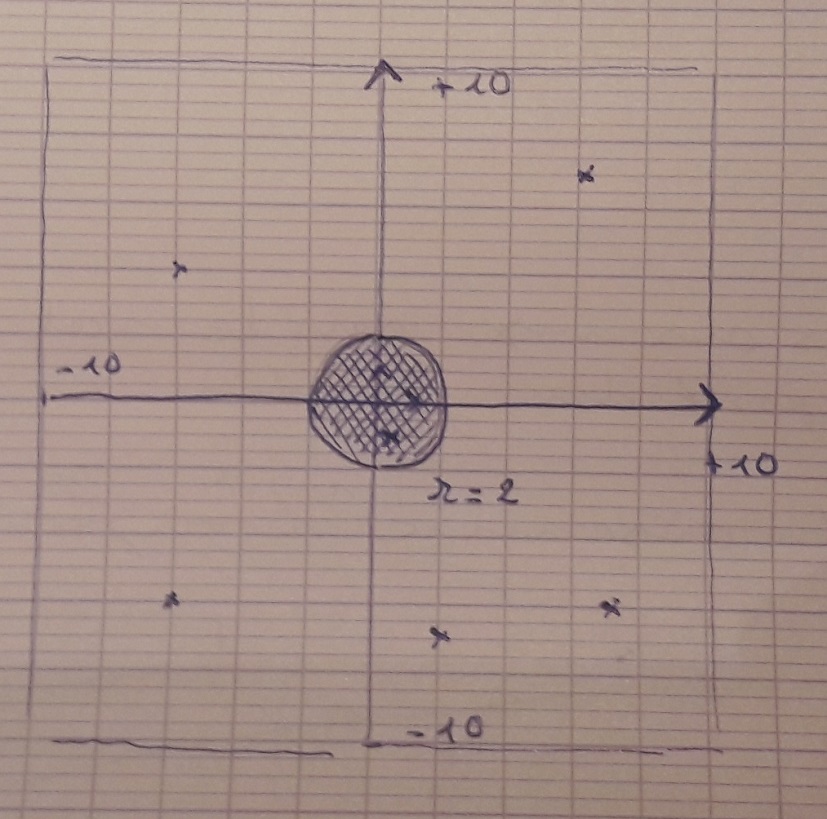 +10
-10
+10
r=2
-10